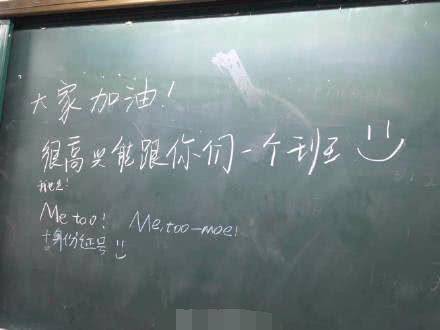 大家加油!
很高兴能跟你们一个班
我也是!
Me too! Me,too-moe!
十身份证号